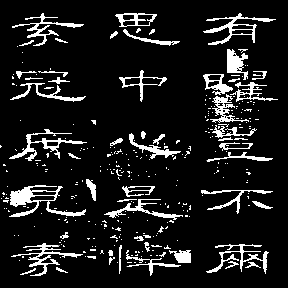 有曜豈不爾
思中心是悼
素冠庶見素